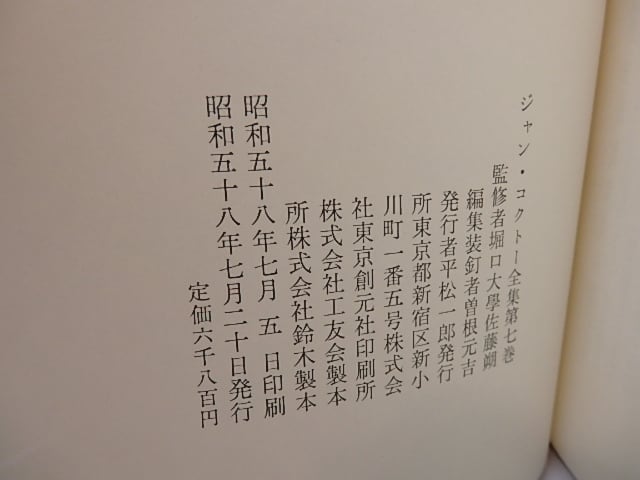 ジャン・コクトー全集第七巻
監修者堀口大學佐藤朔
編集装釘者曽根元吉
発行者平松一郎発行
所東京都新宿区新小
川町一番五号株式会
社東京創元社印刷所
株式会社工友会製本
所株式会社鈴木製本
昭和五十八年七月 五 日印刷
昭和五十八年七月二十日発行
定価六千八百円